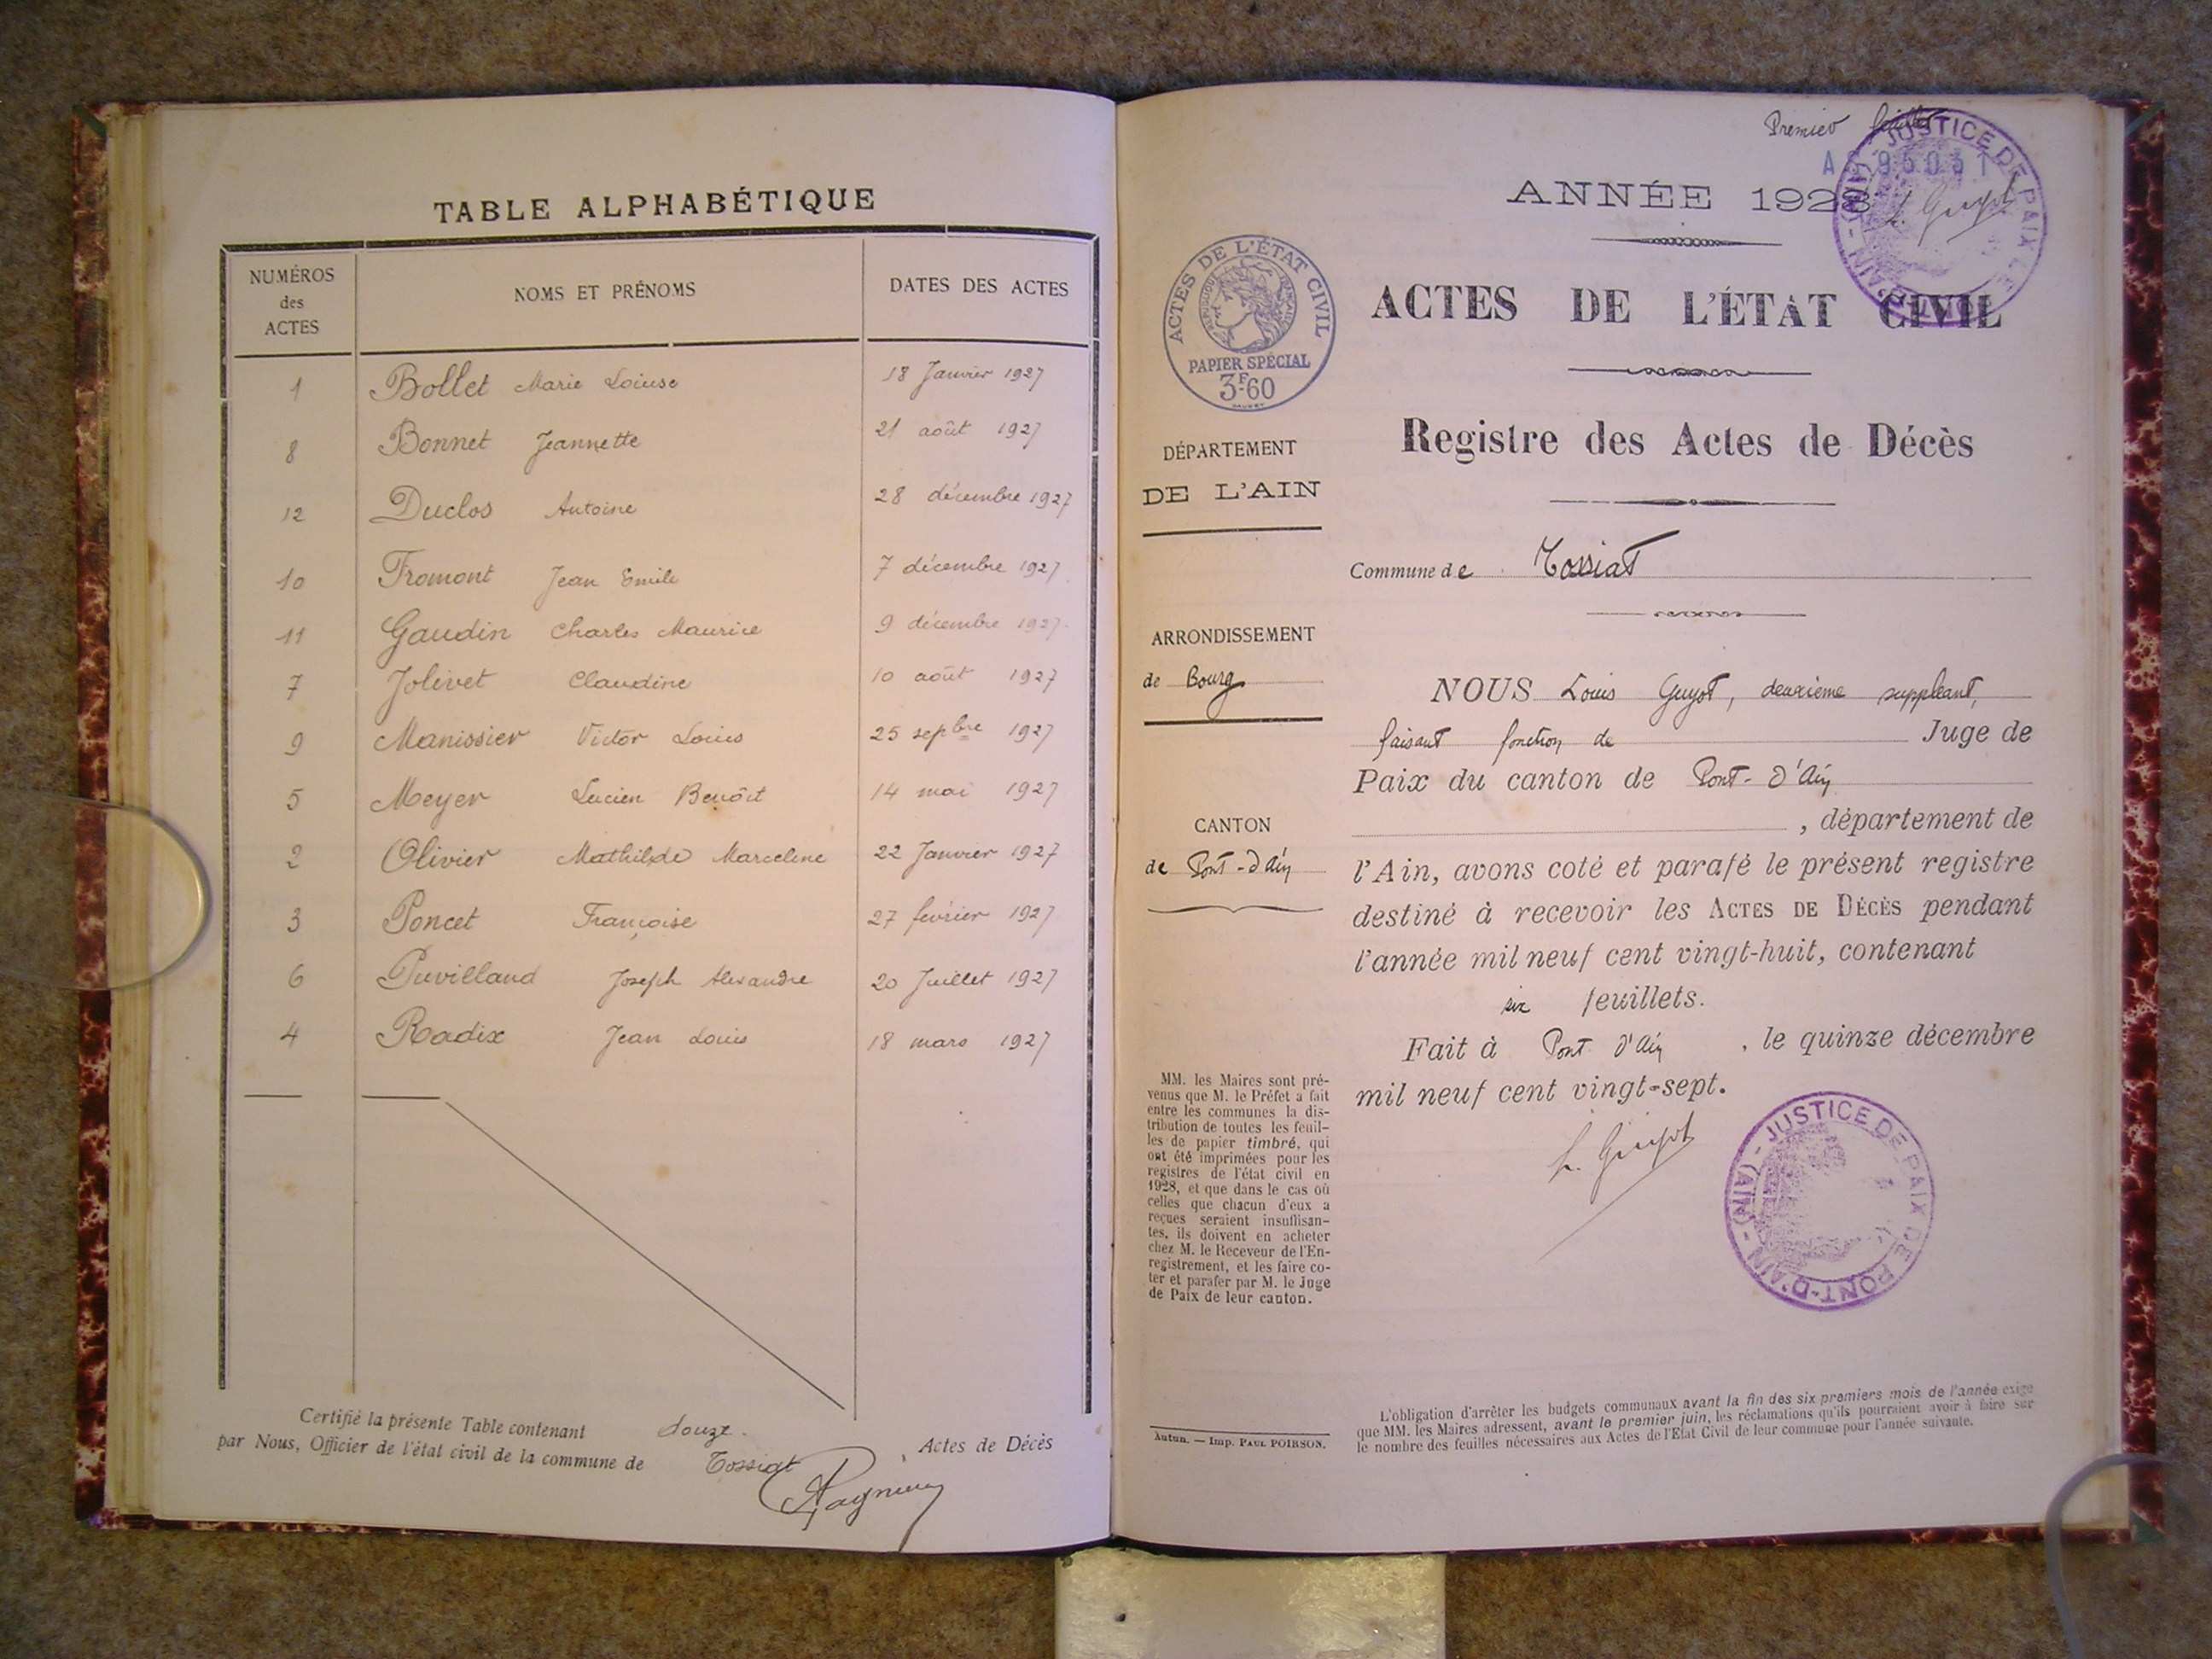 TABLE ALPHABÉTIQUE
NUMÉROS des ACTES NOMS ET PRÉNOMS DATES DES ACTES
1 Bollet Marie Loiuse 18 Janvier 1927
8 Bonnet Jeannette 21 août 1927
12 Duclos Antoine 28 décembre 1927
10 Fromont Jean Emile 7 décembre 1927
11 Gaudin Charles Maurice 9 décembre 1927
7 Jolivet Claudine 10 août 1927
9 Manissier Victor Louis 25 sepbre 1927
5 Meyer Lucien Benoît 14 mai 1927
2 Olivier Mathilde Marceline 22 Janvier 1927
3 Poncet Françoise 27 février 1927
6 Puvilland Joseph Alexandre 20 Juillet 1927
4 Radix Jean Louis 18 mars 1927
Certifié la présente Table contenant douze Actes de Décès
par Nous, Officier de l'état civil de la commune de Tossiat
Premier feuillet
ANNÉE 1928
L. Guyot
JUSTICE DE PAIX DE
(AIN)
ACTES DE L'ÉTAT CIVIL
RÉPUBLIQUE FRANÇAISE
PAPIER SPÉCIAL
3F.60
ACTES DE L'ÉTAT CIVIL
Registre des Actes de Décès
DÉPARTEMENT
DE L'AIN
Commune de Tossiat
ARRONDISSEMENT
de Bourg
CANTON
de Pont-d'Ain
NOUS Louis Guyot, deuxième suppléant,
faisant fonction de Juge de
Paix du canton de Pont-d'Ain
, département de
l'Ain, avons coté et parafé le présent registre
destiné à recevoir les ACTES DE DÉCÈS pendant
l'année mil neuf cent vingt-huit, contenant
six feuillets.
Fait à Pont d'Ain, le quinze décembre
mil neuf cent vingt-sept.
L. Guyot
JUSTICE DE PAIX DE PONT-D'AIN - (AIN) -
MM. les Maires sont pré-
venus que M. le Préfet a fait
entre les communes la dis-
tribution de toutes les feuil-
les de papier timbré, qui
ont été imprimées pour les
registres de l'état civil en
1928, et que dans le cas où
celles que chacun d'eux a
reçues seraient insuffisan-
tes, ils doivent en acheter
chez M. le Receveur de l'En-
registrement, et les faire co-
ter et parafer par M. le Juge
de Paix de leur canton.
Autun. — Imp. PAUL POIRSON.
L'obligation d'arrêter les budgets communaux avant la fin des six premiers mois de l'année exige
que MM. les Maires adressent, avant le premier juin, les réclamations qu'ils pourraient avoir à faire sur
le nombre des feuilles nécessaires aux Actes de l'Etat Civil de leur commune pour l'année suivante.